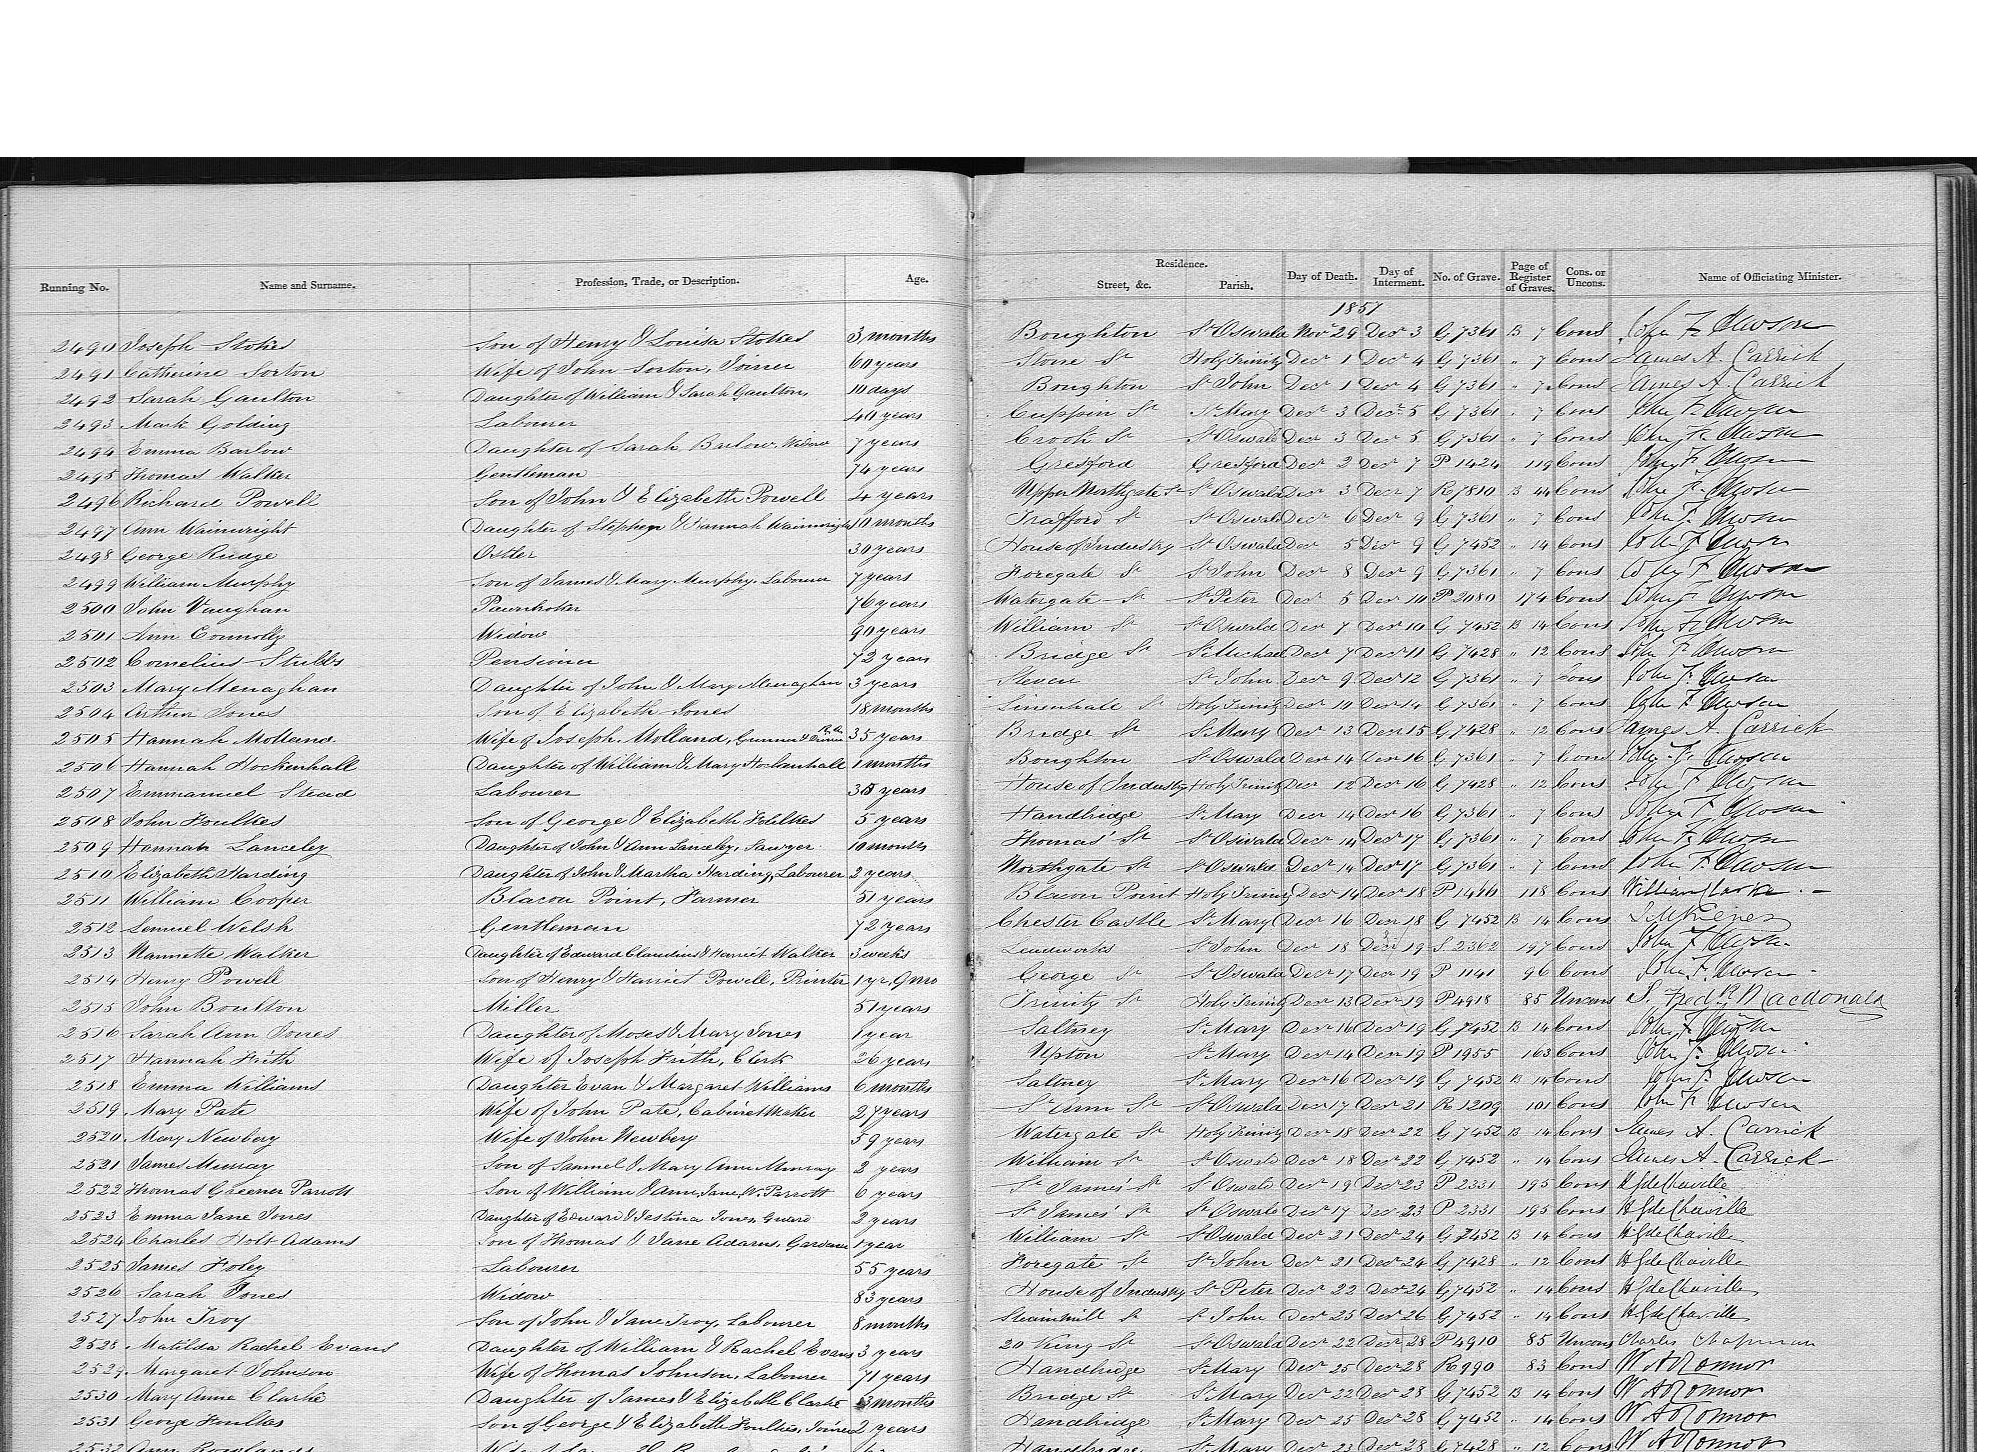 Residence.
Running No. Name and Surname. Profession, Trade, or Description. Age. Street, &c. Parish. Day of Death. Day of Interment. No. of Grave. Page of Register of Graves. Cons. or Uncons. Name of Officiating Minister.
1857
2490 Joseph Stokes Son of Henry & Louisa Stokes 3 months Boughton St Oswald Novr 29 Decr 3 G 7361 B 7 Cons John F.
2491 Catherine Sorton Wife of John Sorton, Joiner 60 years Stone St Holy Trinity Decr 1 Decr 4 G 7361 " 7 Cons James A. Carrick
2492 Sarah Gaulton Daughter of William & Sarah Gaulton 10 days Boughton St John Decr 1 Decr 4 G 7361 " 7 Cons James A. Carrick
2493 Mark Golding Labourer 40 years Cuppin St St Mary Decr 3 Decr 5 G 7361 " 7 Cons John F.
2494 Emma Barlow Daughter of Sarah Barlow, Widow 7 years Crook St St Oswald Decr 3 Decr 5 G 7361 " 7 Cons John F.
2495 Thomas Walker Gentleman 74 years Gresford Gresford Decr 2 Decr 7 P 1424 119 Cons John F.
2496 Richard Powell Son of John & Elizabeth Powell 4 years Upper Northgate St St Oswald Decr 3 Decr 7 R 7810 B 44 Cons John F.
2497 Ann Wainwright Daughter of Stephen & Hannah Wainwright 10 months Trafford St St Oswald Decr 6 Decr 9 G 7361 " 7 Cons John F.
2498 George Rudge Ostler 30 years House of Industry St Oswald Decr 5 Decr 9 G 7452 " 14 Cons John F.
2499 William Murphy Son of James & Mary Murphy, Labourer 7 years Foregate St St John Decr 8 Decr 9 G 7361 " 7 Cons John F.
2500 John Vaughan Pawnbroker 76 years Watergate St St Peter Decr 5 Decr 10 P 2080 174 Cons John F.
2501 Ann Connolly Widow 90 years William St St Oswald Decr 7 Decr 10 G 7452 B 14 Cons John F.
2502 Cornelius Stubbs Pensioner 72 years Bridge St St Michael Decr 7 Decr 11 G 7428 " 12 Cons John F.
2503 Mary Menaghan Daughter of John & Mary Menaghan 3 years Steven St John Decr 9 Decr 12 G 7361 " 7 Cons John F.
2504 Arthur Jones Son of Elizabeth Jones 18 months Linenhall St Holy Trinity Decr 10 Decr 14 G 7361 " 7 Cons John F.
2505 Hannah Molland Wife of Joseph Molland, Gunner & Driver 35 years Bridge St St Mary Decr 13 Decr 15 G 7428 " 12 Cons James A. Carrick
2506 Hannah Hockenhall Daughter of William & Mary Hockenhall 1 months Boughton St Oswald Decr 14 Decr 16 G 7361 " 7 Cons John F.
2507 Emmanuel Stead Labourer years House of Industry Holy Trinity Decr 12 Decr 16 G 7428 " 12 Cons John F.
2508 John Foulkes Son of George & Elizabeth Foulkes 5 years Handbridge St Mary Decr 14 Decr 16 G 7361 " 7 Cons John F.
2509 Hannah Lanceley Daughter of John & Ann Lanceley, Sawyer 10 months Thomas' St St Oswald Decr 14 Decr 17 G 7361 " 7 Cons John F.
2510 Elizabeth Harding Daughter of John & Martha Harding, Labourer 2 years Northgate St St Oswald Decr 14 Decr 17 G 7361 " 7 Cons John F.
2511 William Cooper Blacon Point, Farmer 51 years Blacon Point Holy Trinity Decr 14 Decr 18 P 118 Cons William
2512 Lemuel Welsh Gentleman 72 years Chester Castle St Mary Decr 16 Decr 18 G 7452 B 14 Cons
2513 Nannette Walker Daughter of Edward Claudius & Harriet Walker 3 weeks Leadworks St John Decr 18 Decr 19 S 2362 197 Cons John F.
2514 Henry Powell Son of Henry & Harriet Powell, Printer 1 yr, 9 mo George St St Oswald Decr 17 Decr 19 P 1141 96 Cons John F.
2515 John Boulton Miller 51 years Trinity St Holy Trinity Decr 13 Decr 19 P 4918 85 Uncons Fredk Macdonald
2516 Sarah Ann Jones Daughter of Moses & Mary Jones 1 year Saltney St Mary Decr 16 Decr 19 G 7452 B 14 Cons John F.
2517 Hannah Frith Wife of Joseph Frith, Clerk 26 years Upton St Mary Decr 14 Decr 19 P 1955 163 Cons John F.
2518 Emma Williams Daughter Evan & Margaret Williams 6 months Saltney St Mary Decr 16 Decr 19 G 7452 B 14 Cons John F.
2519 Mary Pate Wife of John Pate, Cabinet Maker 27 years St Ann St St Oswald Decr 17 Decr 21 R 1209 101 Cons John F.
2520 Mary Newbery Wife of John Newbery 59 years Watergate St Holy Trinity Decr 18 Decr 22 G 7452 B 14 Cons James A. Carrick
2521 James Murray Son of Samuel & Mary Ann Murray 2 years William St St Oswald Decr 18 Decr 22 G 7452 " 14 Cons James A. Carrick
2522 Thomas Greener Parrott Son of William & Ann Jane W. Parrott 6 years St James' St St Oswald Decr 19 Decr 23 P 2331 195 Cons
2523 Emma Jane Jones Daughter of Edward & Jestina Jones, Guard 2 years St James' St St Oswald Decr 17 Decr 23 P 2331 195 Cons
2524 Charles Holt Adams Son of Thomas & Jane Adams, 1 year William St St Oswald Decr 21 Decr 24 G 7452 B 14 Cons
2525 James Foley Labourer 55 years Foregate St St John Decr 21 Decr 24 G 7428 " 12 Cons
2526 Sarah Jones Widow 83 years House of Industry St Peter Decr 22 Decr 24 G 7452 " 14 Cons
2527 John Troy Son of John & Jane Troy, Labourer 8 months Steammill St St John Decr 25 Decr 26 G 7452 " 14 Cons
2528 Matilda Rachel Evans Daughter of William & Rachel Evans 3 years 20 King St St Oswald Decr 22 Decr 28 P 4910 85 Uncons Charles Chapman
2529 Margaret Johnson Wife of Thomas Johnson, Labourer 71 years Handbridge St Mary Decr 25 Decr 28 R 990 83 Cons W A O'Connor
2530 Mary Anne Clarke Daughter of James & Elizabeth Clarke 3 months Bridge St St Mary Decr 22 Decr 28 G 7452 B 14 Cons W A O'Connor
2531 George Foulkes Son of George & Elizabeth Foulkes, Joiner 2 years Handbridge St Mary Decr 25 Decr 28 G 7452 " 14 Cons W A O'Connor
2532 Ann Rowlands Handbridge St Mary Decr 23 Decr 28 G 7428 " 12 Cons W A O'Connor